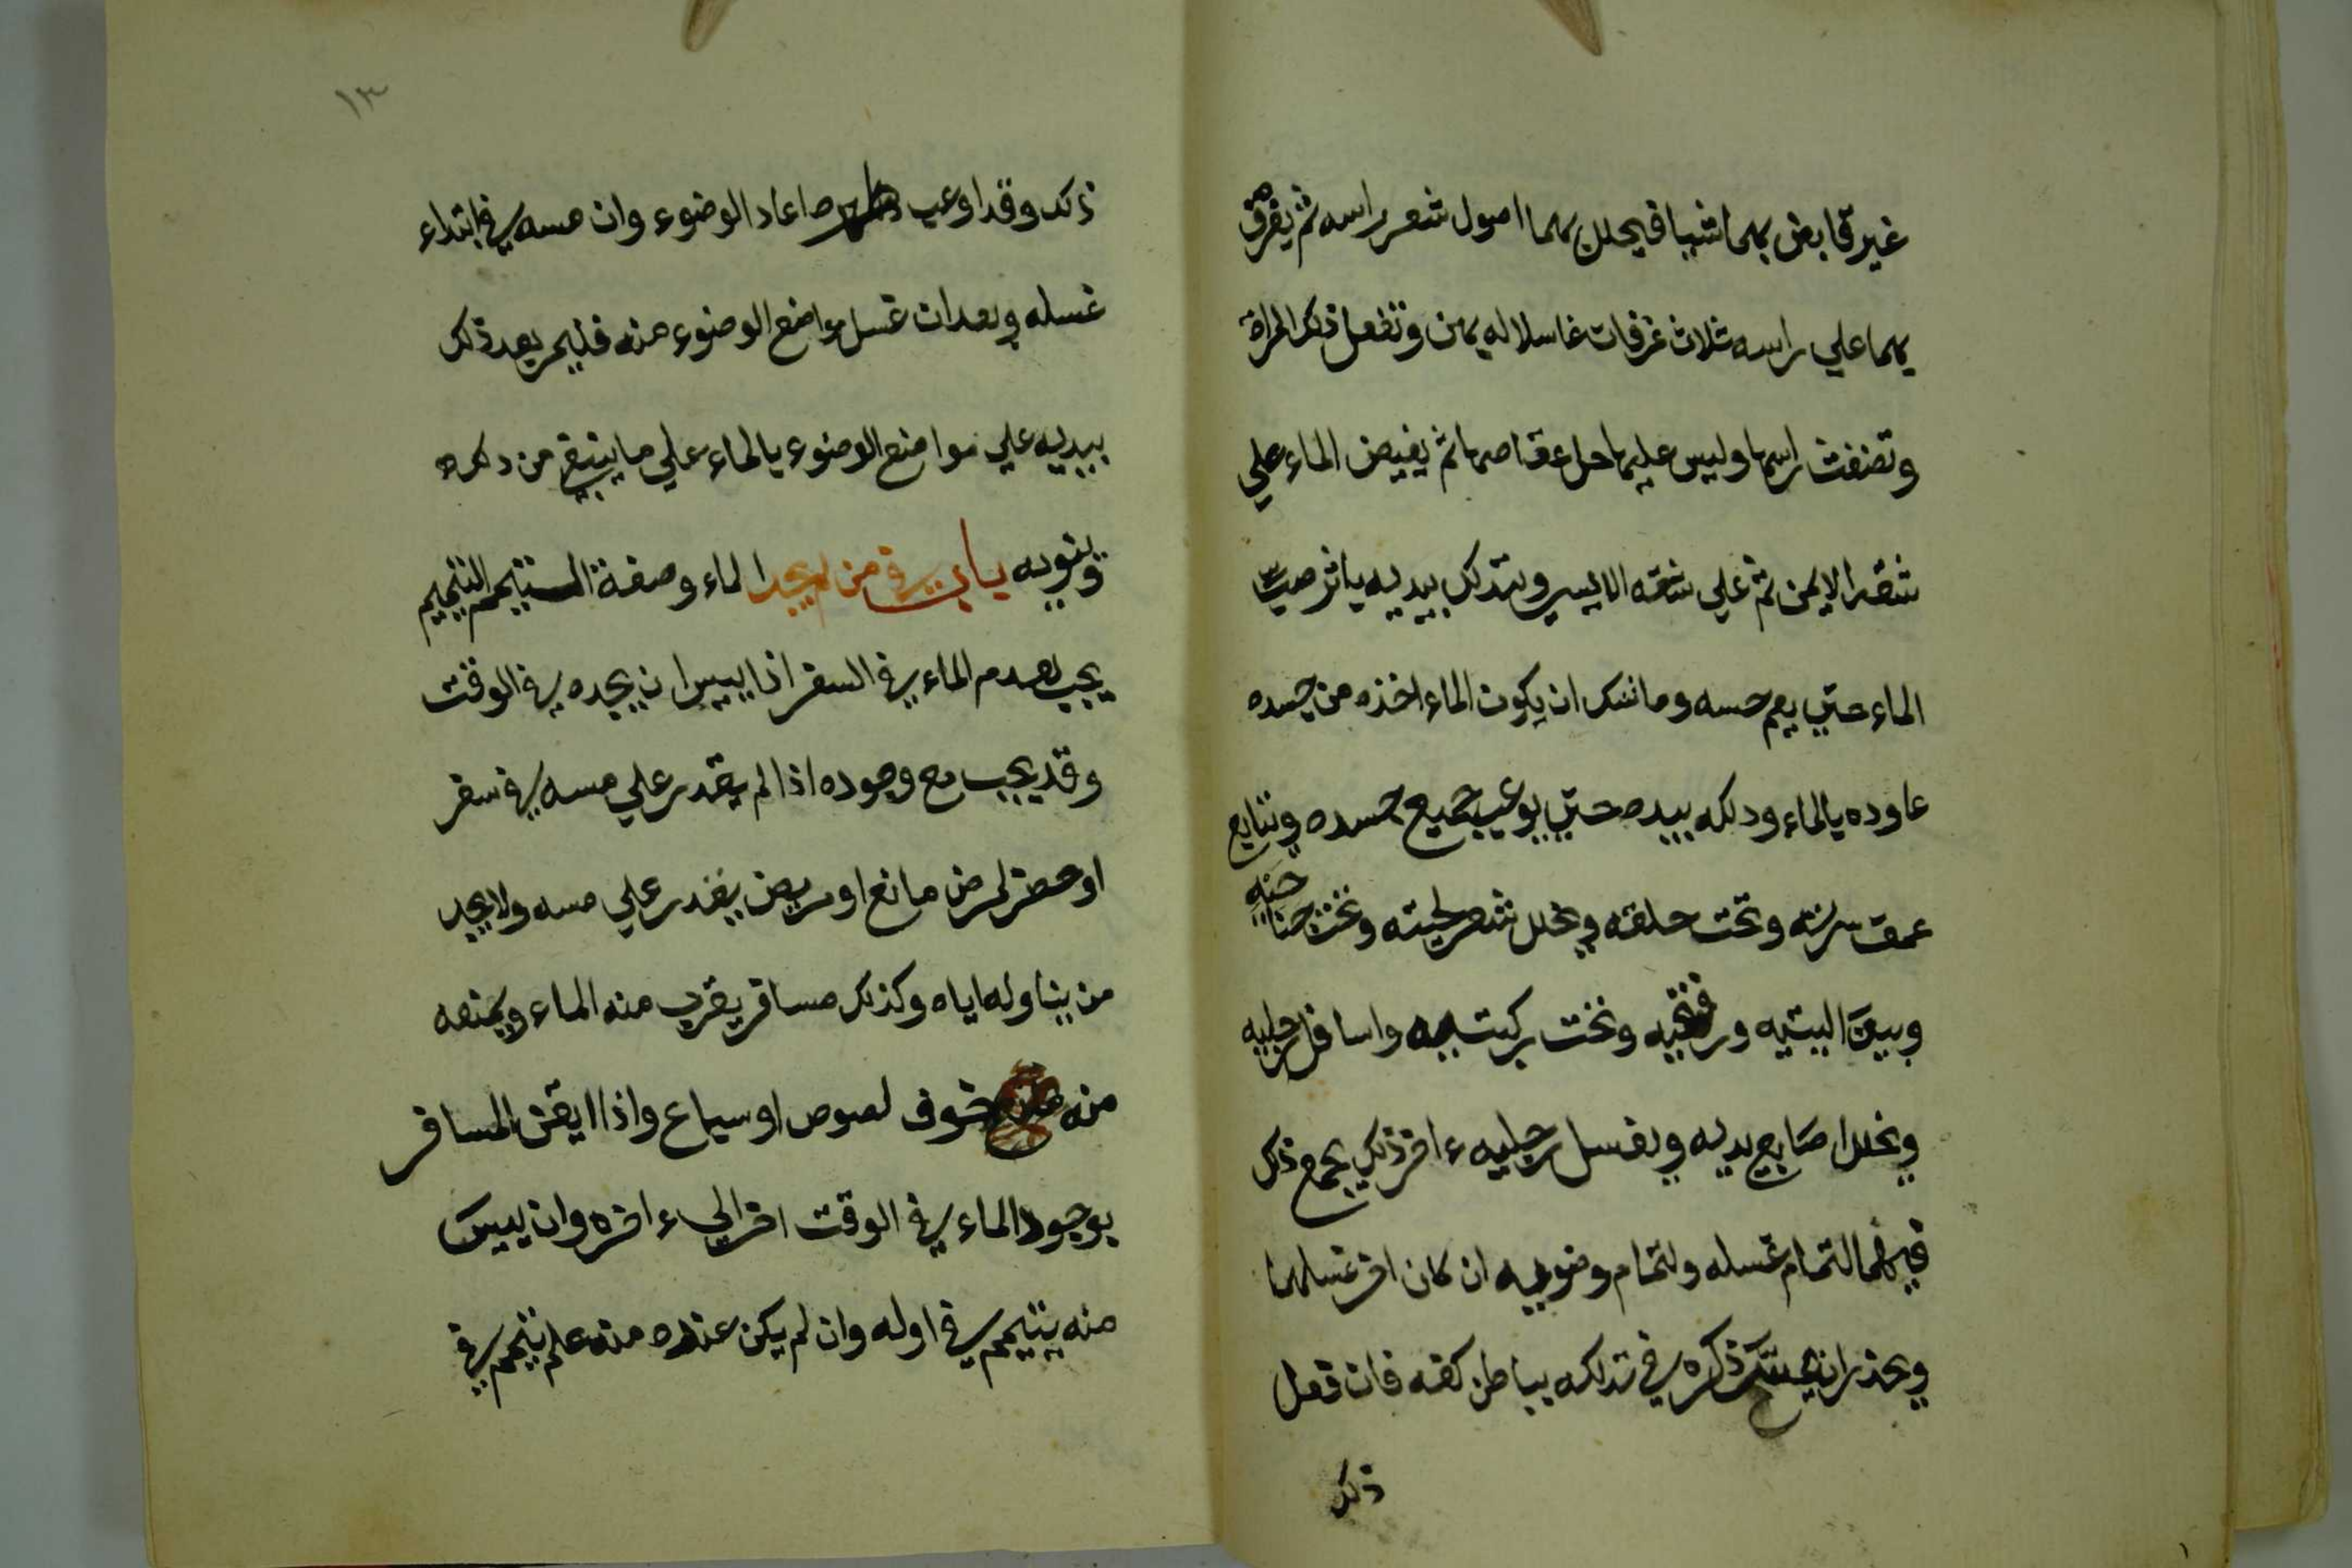 غير قابض بهما شيا فيخلل بهما اصول شعر راسه ثم يغرف
بهما علي راسه ثلاث غرفات غاسلا له بهن وتفعل ذلك المراة
وتضغث راسها وليس عليها حل عقاصها ثم يفيض الماء علي
شقه الايمن ثم علي شقه الايسر ويتدلك بيديه باثر صب
الماء حتي يعم جسده وما شك ان يكون الماء اخذه من جسده
عاوده بالماء ودلكه بيده حتي يوعب جميع جسده ويتابع
عمق سرته وتحت حلقه ويخلل شعر لحيته وتحت جناحيه
وبين اليتيه ورفغيه وتحت ركبتيه واسافل رجليه
ويخلل اصابع يديه ويغسل رجليه ءاخر ذلك يجمع ذلك
فيهما لتمام غسله ولتمام وضويه ان كان اخر غسلهما
ويحذر ان يمس ذكره في تدلكه بباطن كفه فان فعل
ذلك
١٣
ذلك وقد اوعب طهره اعاد الوضوء وان مسه في ابتداء
غسله وبعد ان غسل مواضع الوضوء منه فليمر بعد ذلك
بيديه علي مواضع الوضوء بالماء علي ما ينبغي من ذلك
وينويه باب في من لم يجد الماء وصفة التيمم التيمم
يجب لعدم الماء في السفر اذا ييس ان يجده في الوقت
وقد يجب مع وجوده اذا لم يقدر علي مسه في سفر
او حضر لمرض مانع او مريض يقدر علي مسه ولا يجد
من يناوله اياه وكذلك مسافر يقرب منه الماء ويمنعه
منه خوف لصوص او سباع واذا ايقن المسافر
بوجود الماء في الوقت اخر الي ءاخره وان ييس
منه يتيمم في اوله وان لم يكن عنده منه علم تيمم في